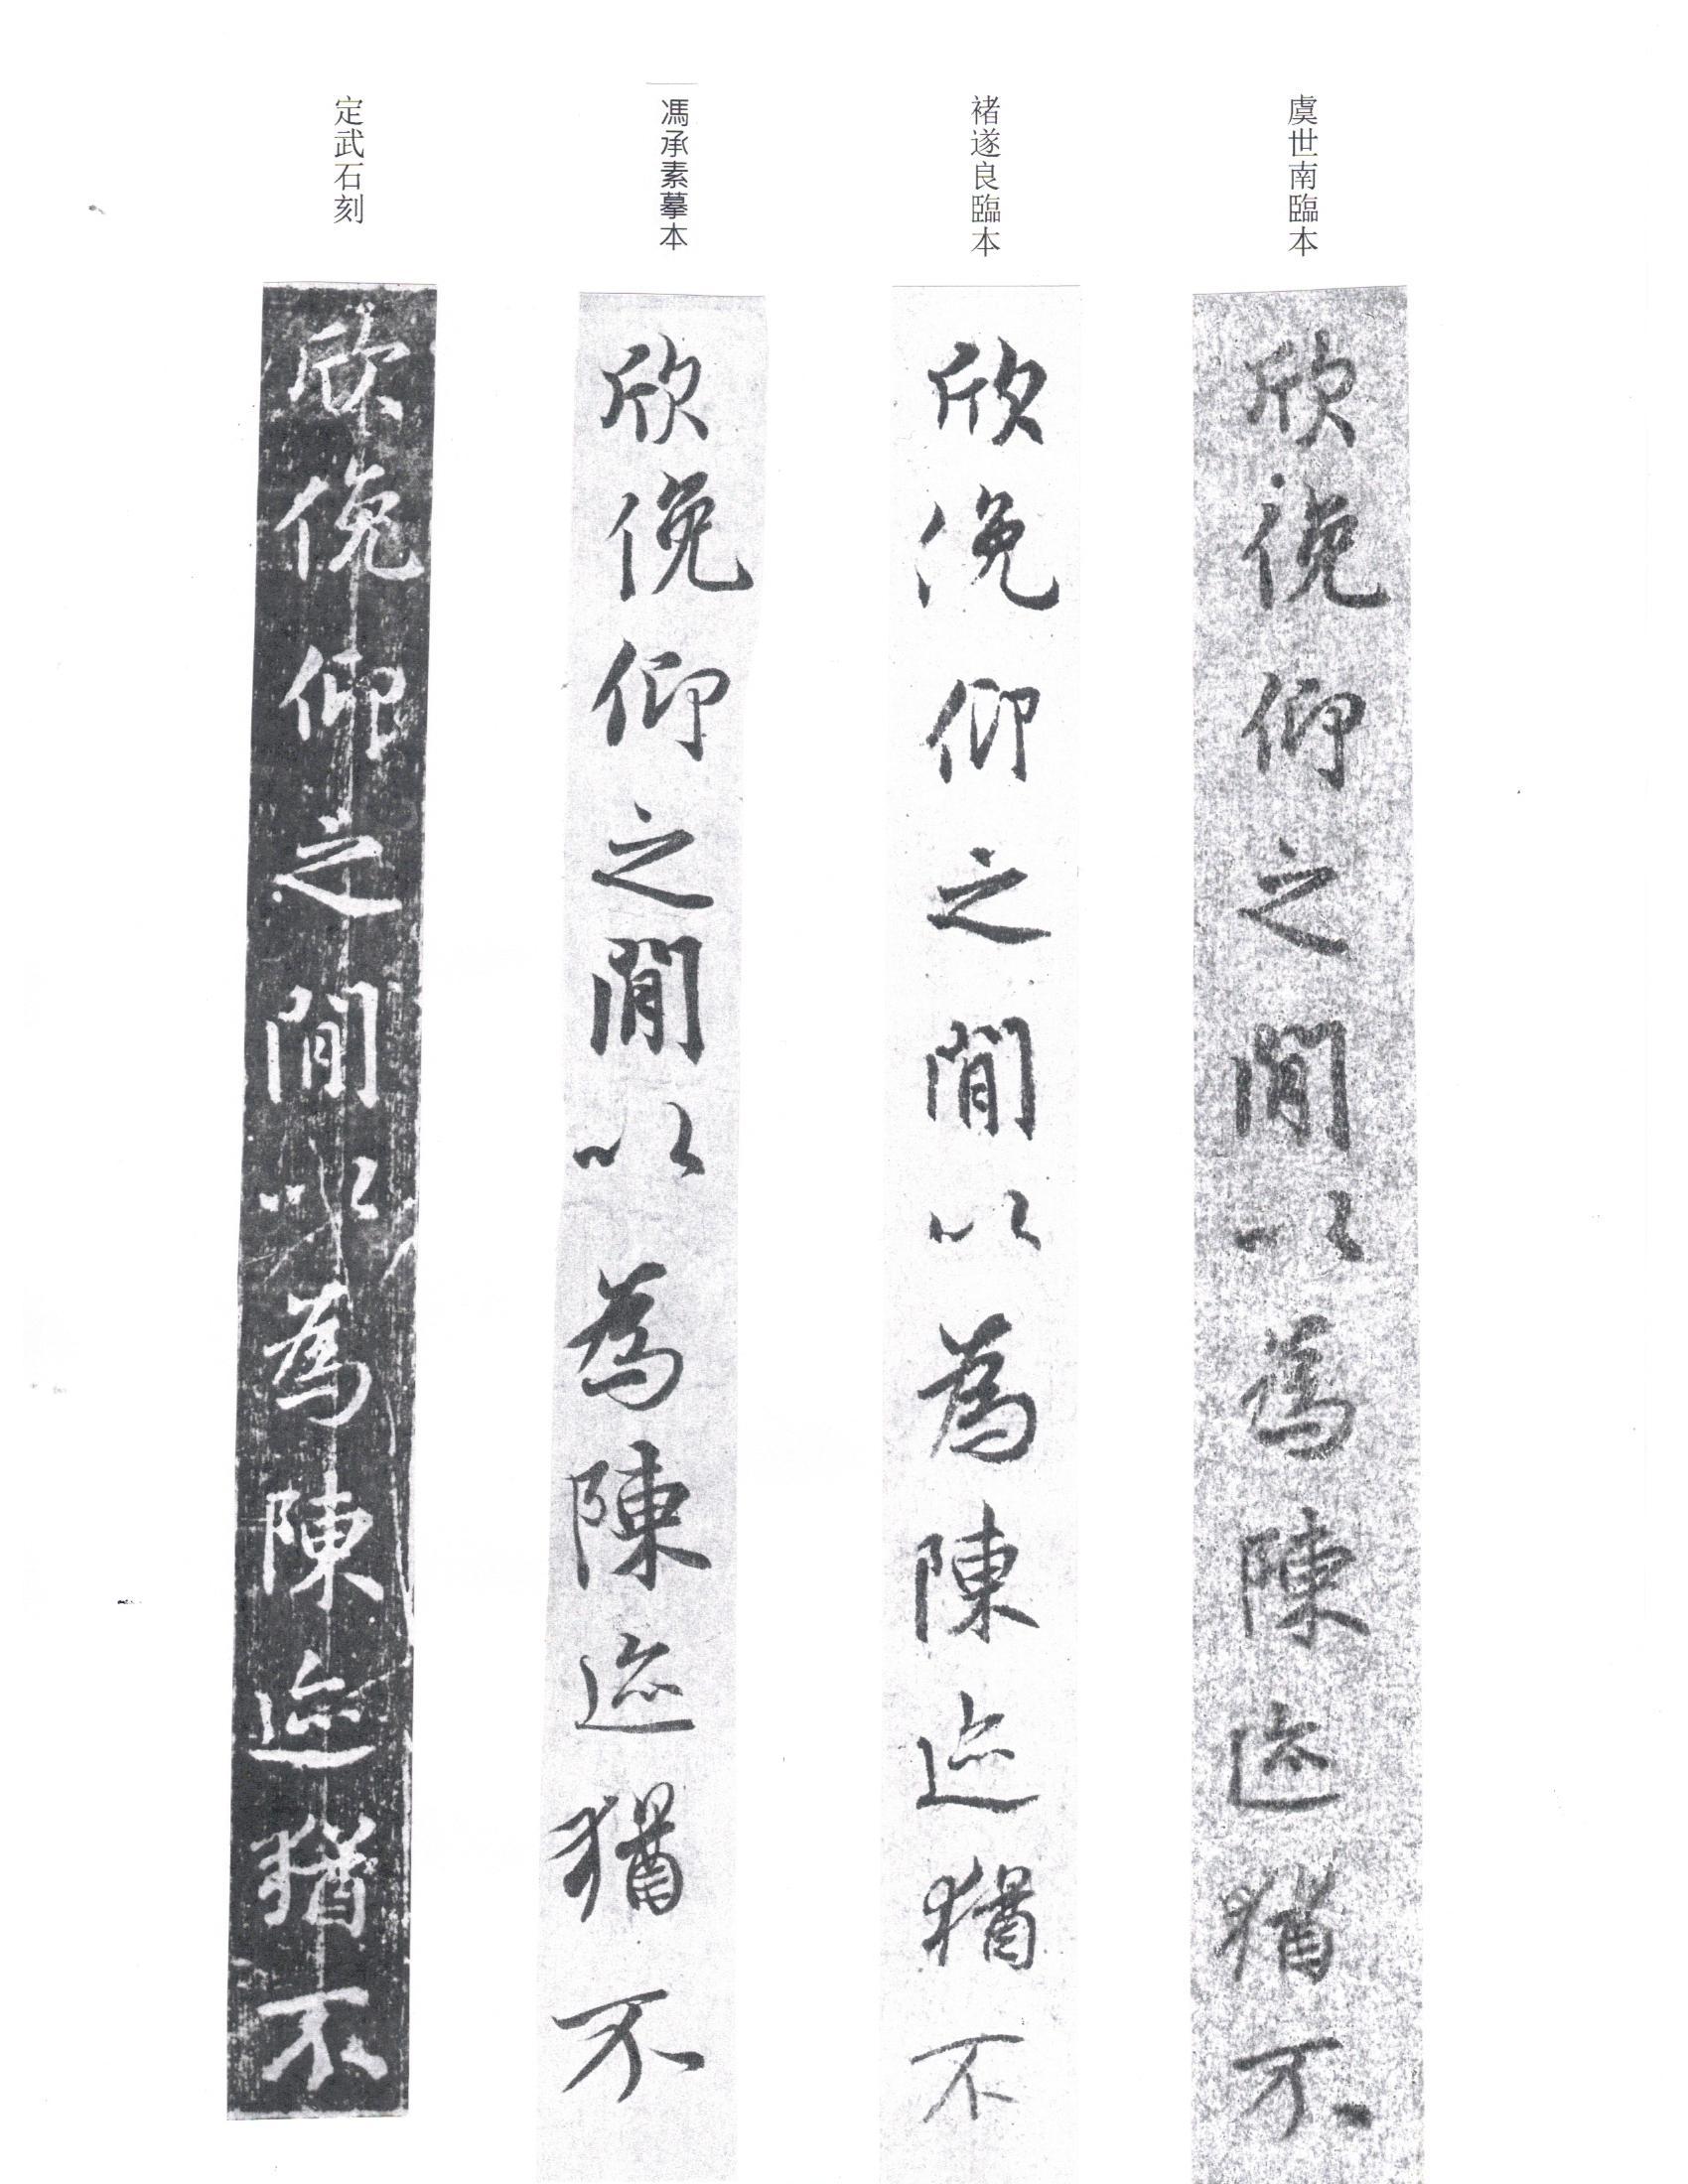 虞世南臨本
欣俛仰之閒以為陳迹猶不
褚遂良臨本
欣俛仰之閒以為陳迹猶不
馮承素摹本
欣俛仰之閒以為陳迹猶不
定武石刻
欣俛仰之閒以為陳迹猶不